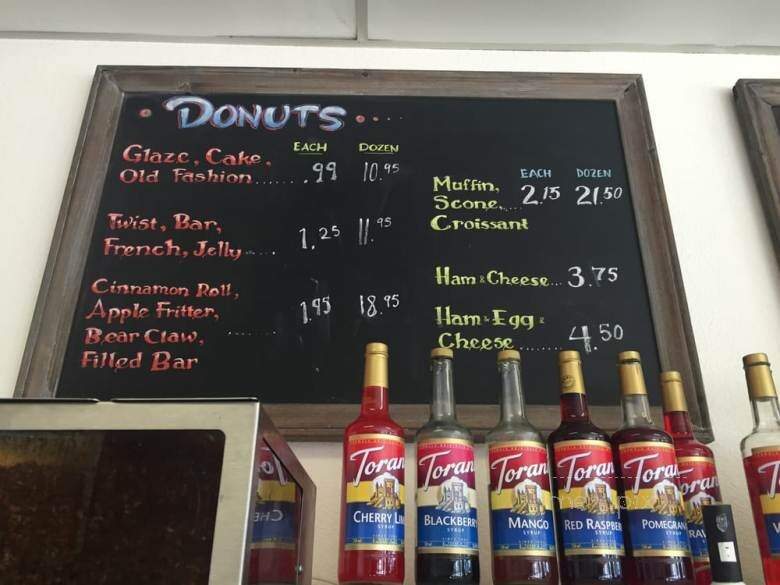 DONUTS
EACH DOZEN
Glaze, Cake,
Old Fashion....... .99 10.95
Twist, Bar,
French, Jelly..... 1.25 11.95
Cinnamon Roll,
Apple Fritter, 1.95 18.95
Bear Claw, .........
Filled Bar
EACH DOZEN
Muffin, 2.15 21.50
Scone.....
Croissant
Ham & Cheese... 3.75
Ham & Egg &
Cheese........ 4.50
Torani
CHERRY LIM
SYRUP
Torani
BLACKBERRY
SYRUP
Torani
MANGO
SYRUP
Torani
RED RASPBE
SYRUP
Torani
POMEGRAN
SYRUP